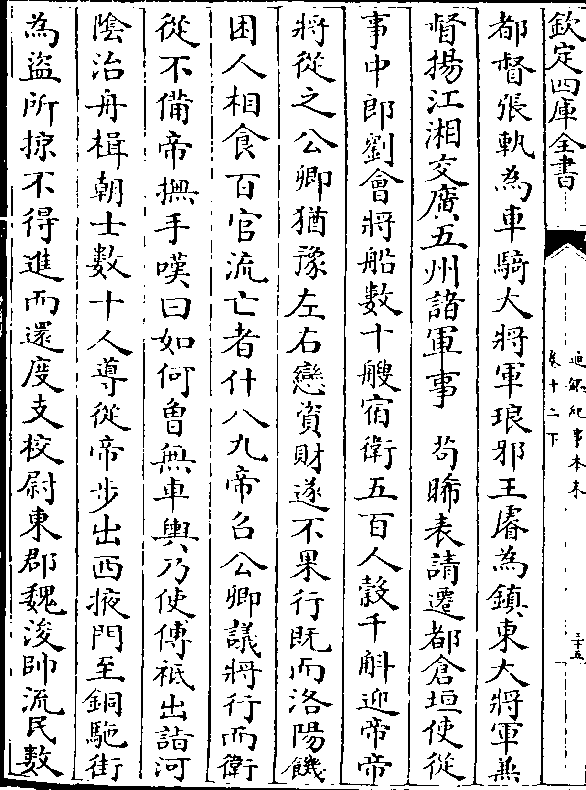 欽定四庫全書
通鑑紀事本末
卷十二下
三十五
都督張軌為車騎大將軍琅邪王睿為鎮東大將軍兼
督揚江湘交廣五州諸軍事 茍晞表請遷都倉垣使從
事中郎劉會將船數十艘宿衛五百人穀千斛迎帝帝
將從之公卿猶豫左右戀資財遂不果行既而洛陽饑
困人相食百官流亡者什八九帝召公卿議將行而衛
從不備帝撫手嘆曰如何曾無車輿乃使傅祗出詣河
隂治舟楫朝士數十人導從帝步出西掖門至銅駝街
為盜所掠不得進而還度支校尉東郡魏浚帥流民數